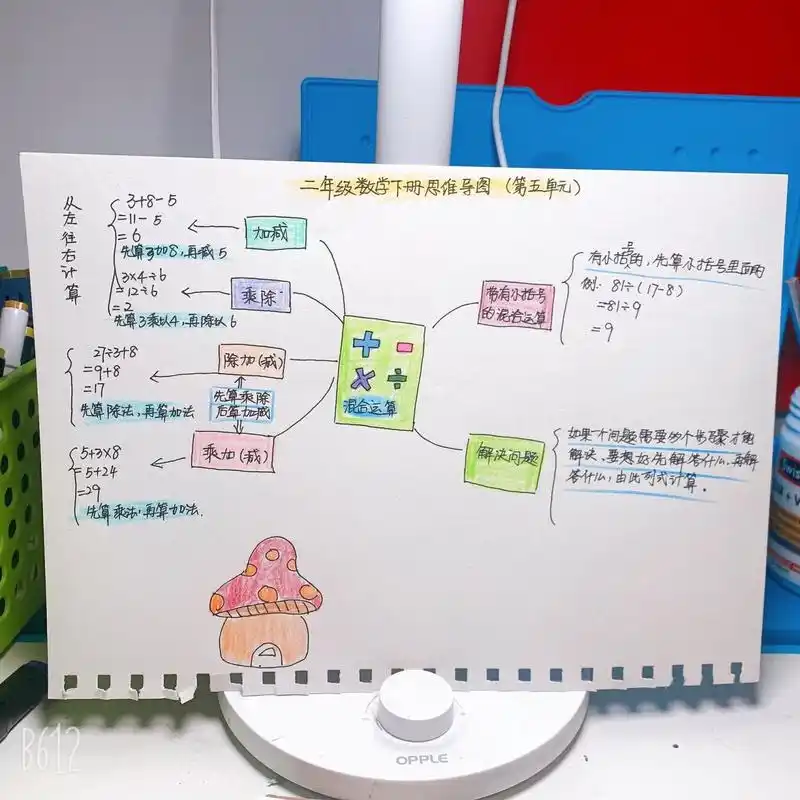 二年级数学下册思维导图（第五单元）
从左往右计算
3+8-5
=11-5
=6
先算3加8,再减5
加减
3×4÷6
=12÷6
=2
先算3乘以4,再除以6
乘除
27÷3+8
=9+8
=17
先算除法,再算加法
除加(减)
先算乘除
后算加减
5+3×8
=5+24
=29
先算乘法,再算加法.
乘加(减)
混合运算
带有小括号
的混合运算
有小括号的,先算小括号里面的
例: 81÷(17-8)
=81÷9
=9
解决问题
如果一个问题需要多个步骤才能
解决,要想好先解答什么,再解
答什么,由此列式计算.
OPPLE
B612